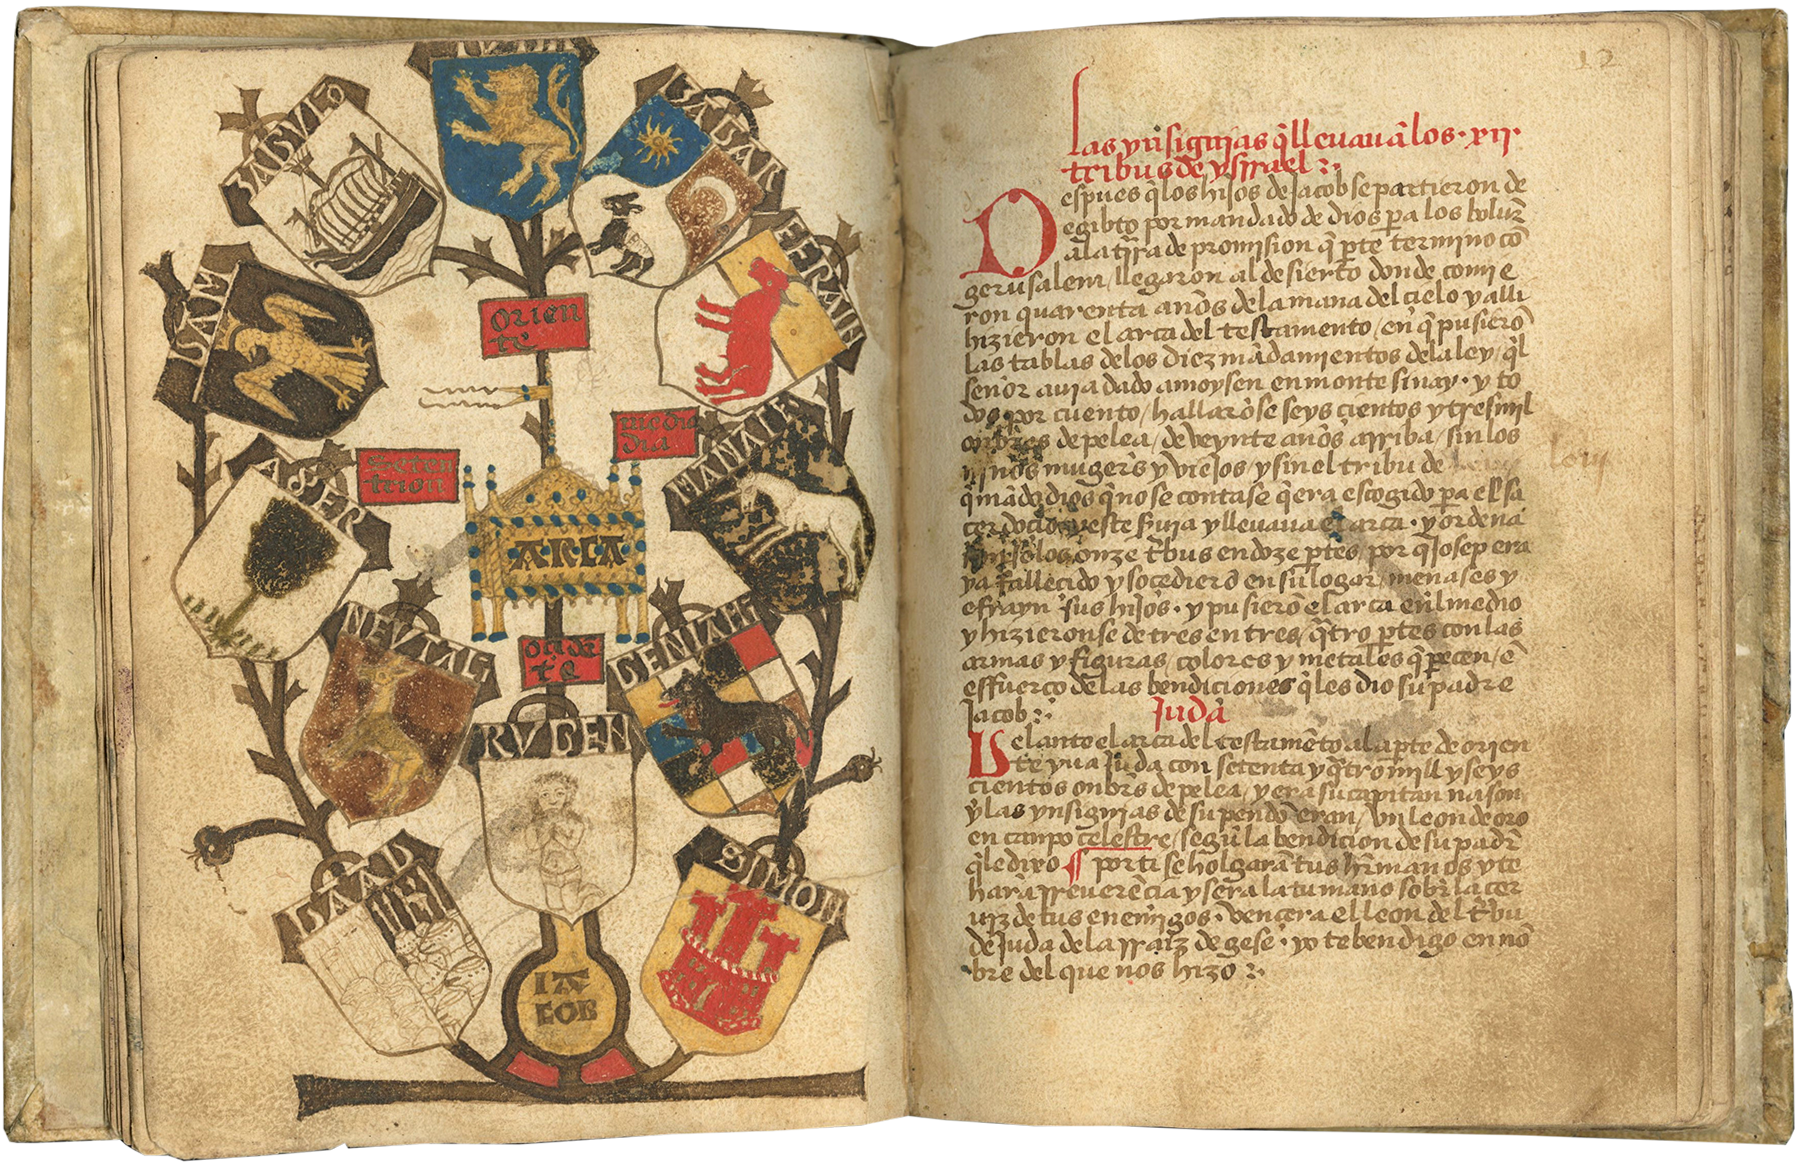 IVDA
ZABVLO
ISACAR
DAM
EFRAIN
orien
te
medio
dia
Seten
trion
MANASE
ASER
ARCA
NEVTALI
BENIAMI
ocide
te
RVBEN
GAAD
SIMON
IA
COB
12
Las ynsignias q̃ llevavã los · xij ·
tribus de ysrrael :·
Despues q̃ los hijos de Jacob se partieron de
egibto por mandado de dios pa los boluer̃
a la tr̃ra de promision q̃ pte termino cõ
gerusalem / llegaron al desierto donde comie
ron quarenta anõs de la mana del cielo y alli
hizieron el arca del testamento / en q̃ pusierõ
las tablas de los diez mãdamientos de la ley / q̃l
senõr avia dado a moysen en monte sinay · y to
dos por cuento / hallarõse seys cientos y tres mil
onbres de pelea / de veynte anõs arriba / sin los
ninõs mugerẽs y viejos / y sin el tribu de Levy
q̃ mãdo dios q̃ no se contase q̃ era escogido pa el sa
cerdocio y este srvia y llevava el arca · y ordena
rõ los onze tribus en doze ptes / por q̃ Josep era
ya fallecido y socedierõ en su logar / menases y
efrayn sus hijos · y pusierõ el arca en l medio
y hizieronse de tres en tres / q̃tro ptes con las
armas y figuras / colores y metales q̃ pecen / ẽ
esfuerço de las bendiciones q̃ les dio su padre
Jacob :·
Judá
Delante el arca del testamẽto a la pte de orien
te yva Juda con setenta y q̃tro mill y seys
cientos onbrs de pelea / y era su capitan nason
y las ynsignias de su pendõ eron / vn leon de oro
en canpo celestre / segũ la bendicion de su padr̃
q̃ le dixo ¶ por ti se holgarã tus hr̃manos y te
harã rreverẽcia y sera la tu mano sobr̃ la cer
uiz de tus enemigos · vencera el leon del tr̃bu
de Juda de la rraiz de gese · yo te bendigo en nõ
bre del que nos hizo :·